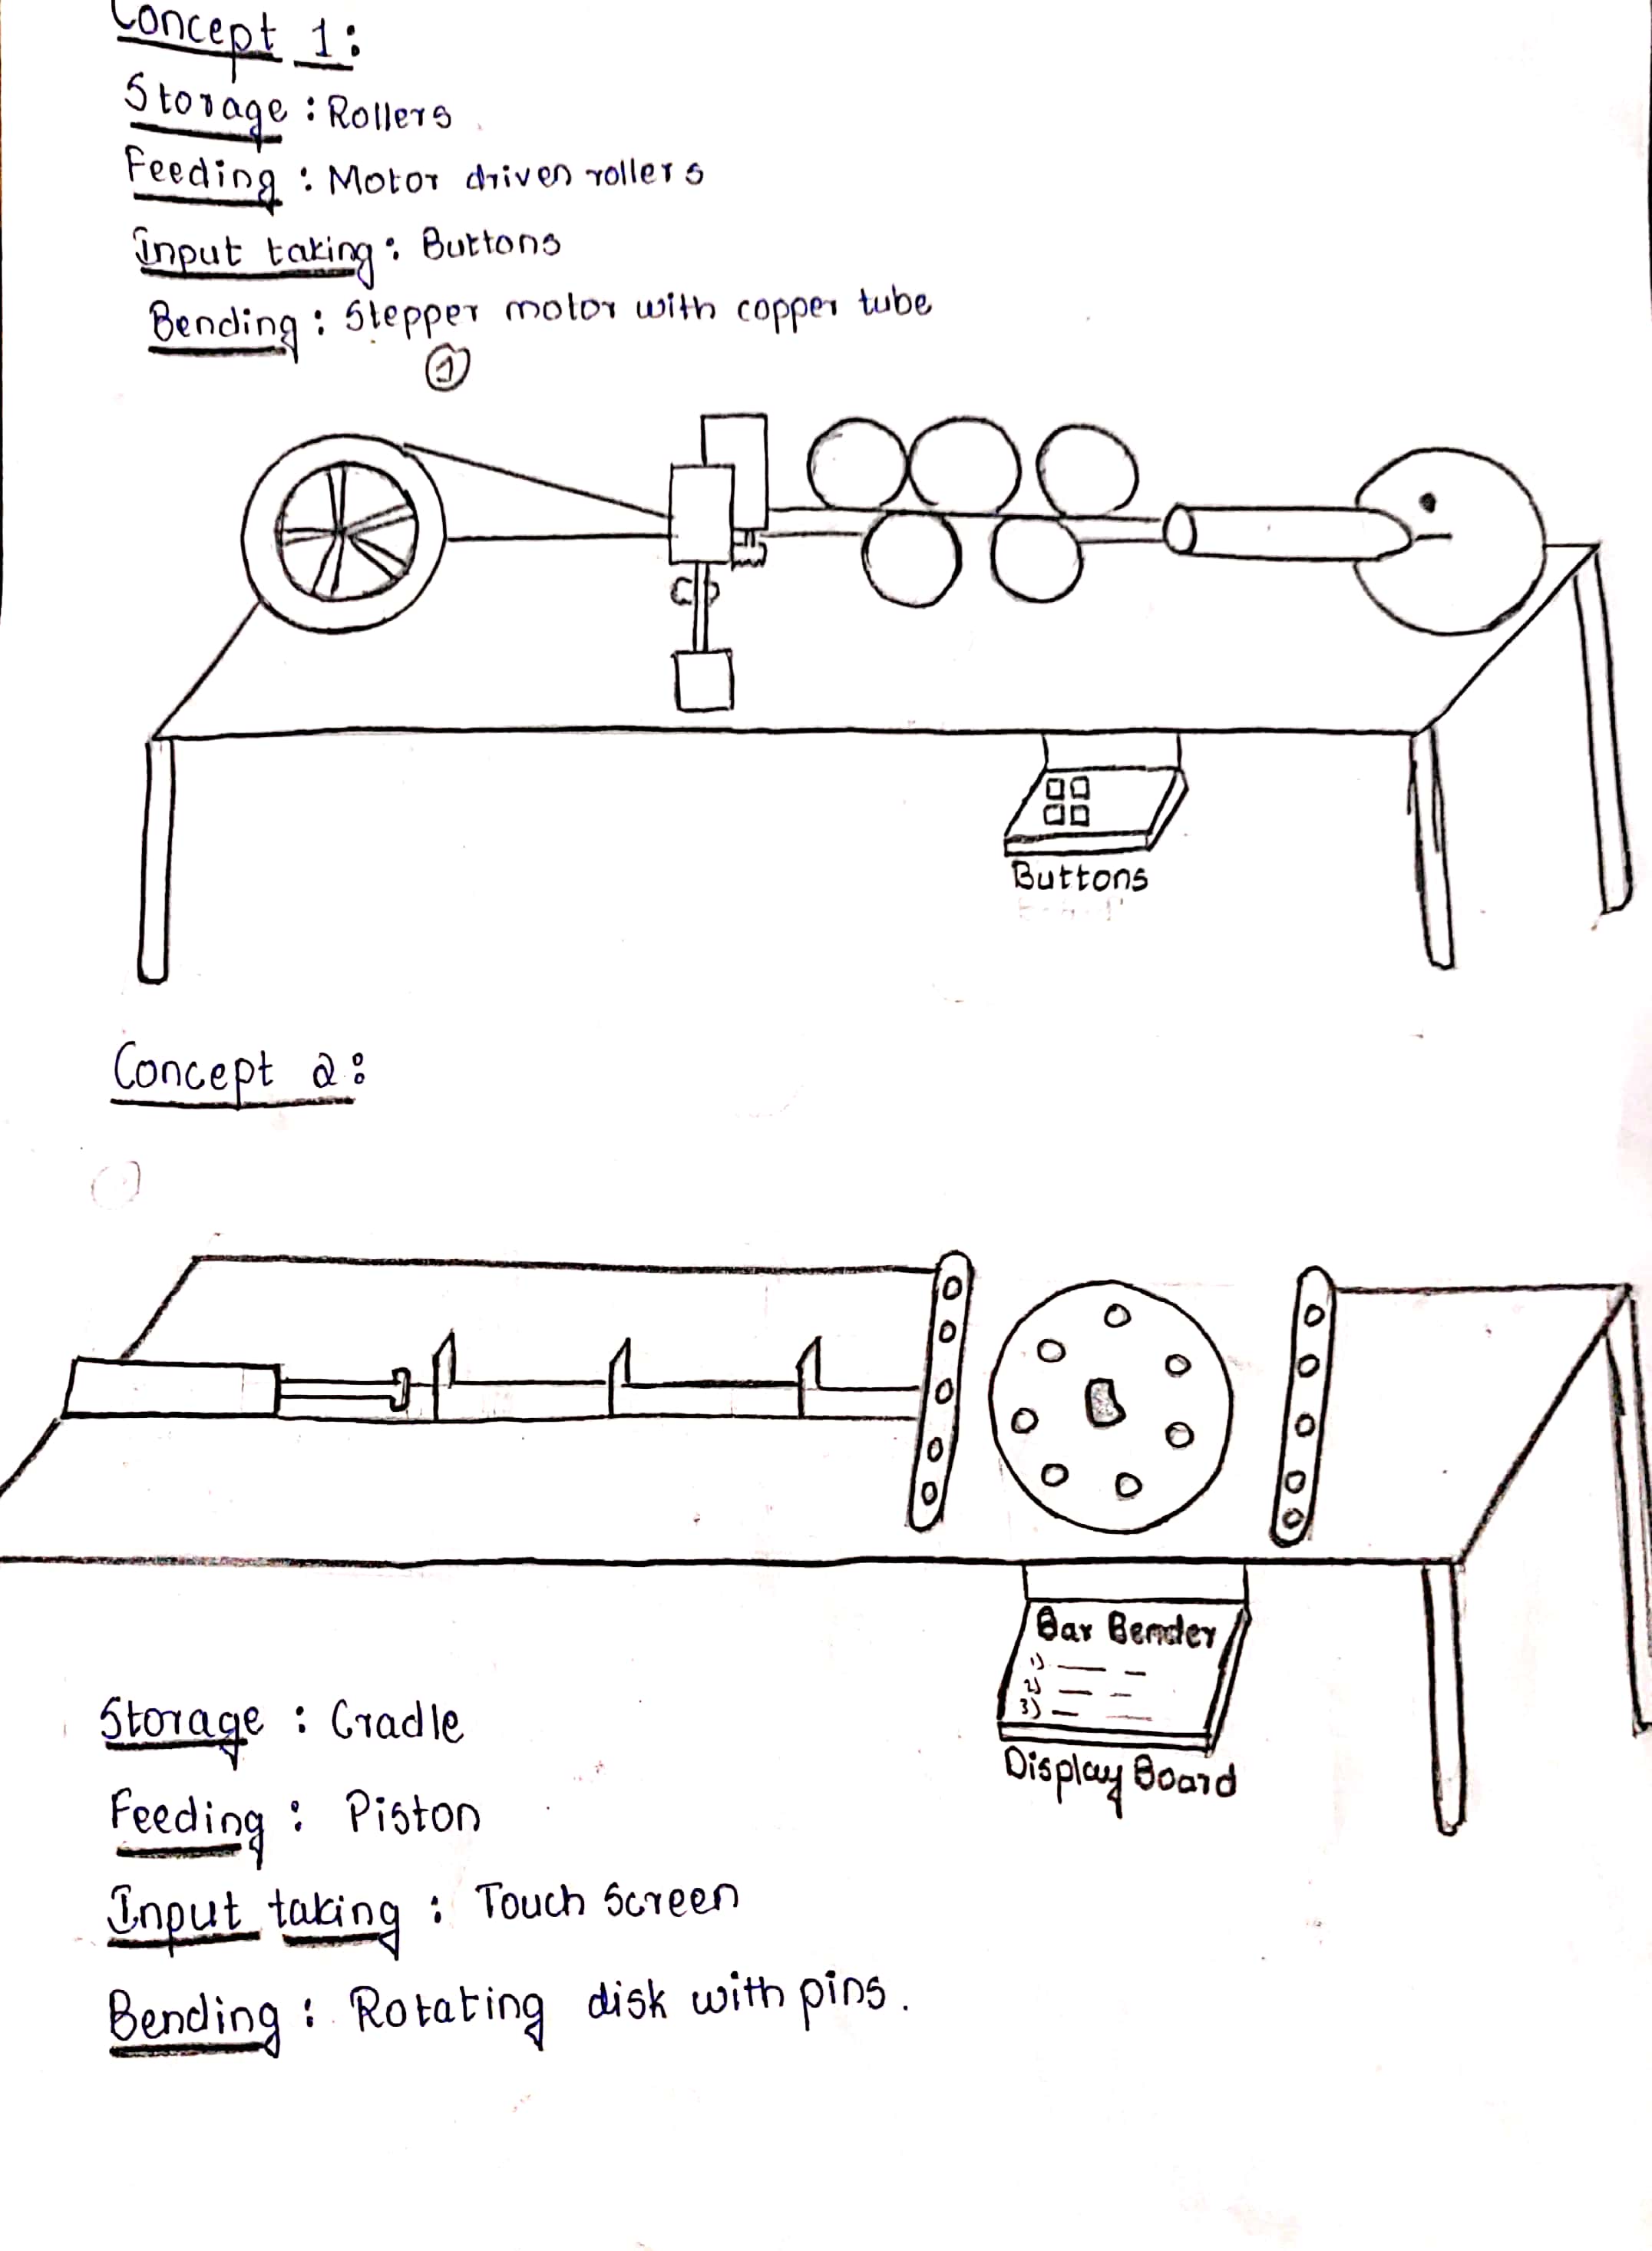 Concept 1:
Storage : Rollers
Feeding : Motor driven rollers
Input taking : Buttons
Bending : Stepper motor with copper tube
1
Buttons
Concept 2:
Bar Bender
1)
2)
3)
Display Board
Storage : Cradle
Feeding : Piston
Input taking : Touch Screen
Bending : Rotating disk with pins.